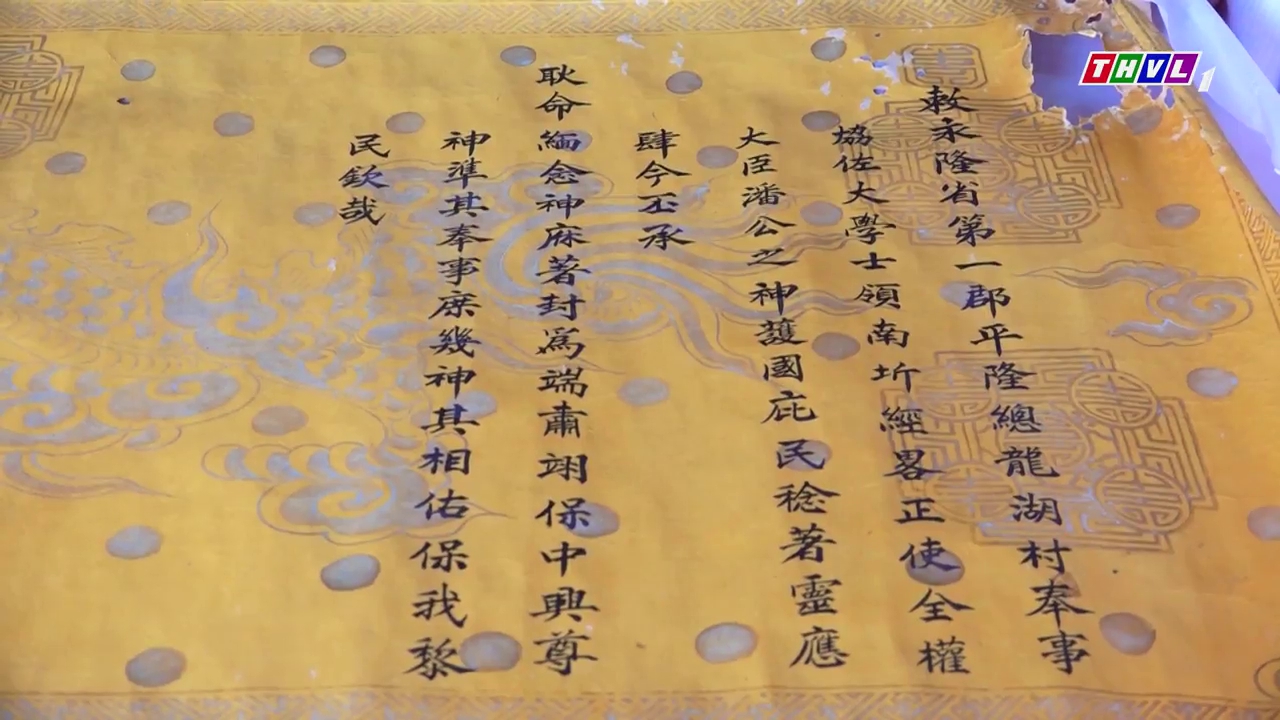 敕永隆省第一郡平隆總龍湖村奉事
協佐大學士領南圻經畧正使全權
大臣潘公之神護國庇民稔著靈應
肆今丕承
耿命緬念神庥著封爲端肅翊保中興尊
神準其奉事庶幾神其相佑保我黎
民欽哉
THVL1